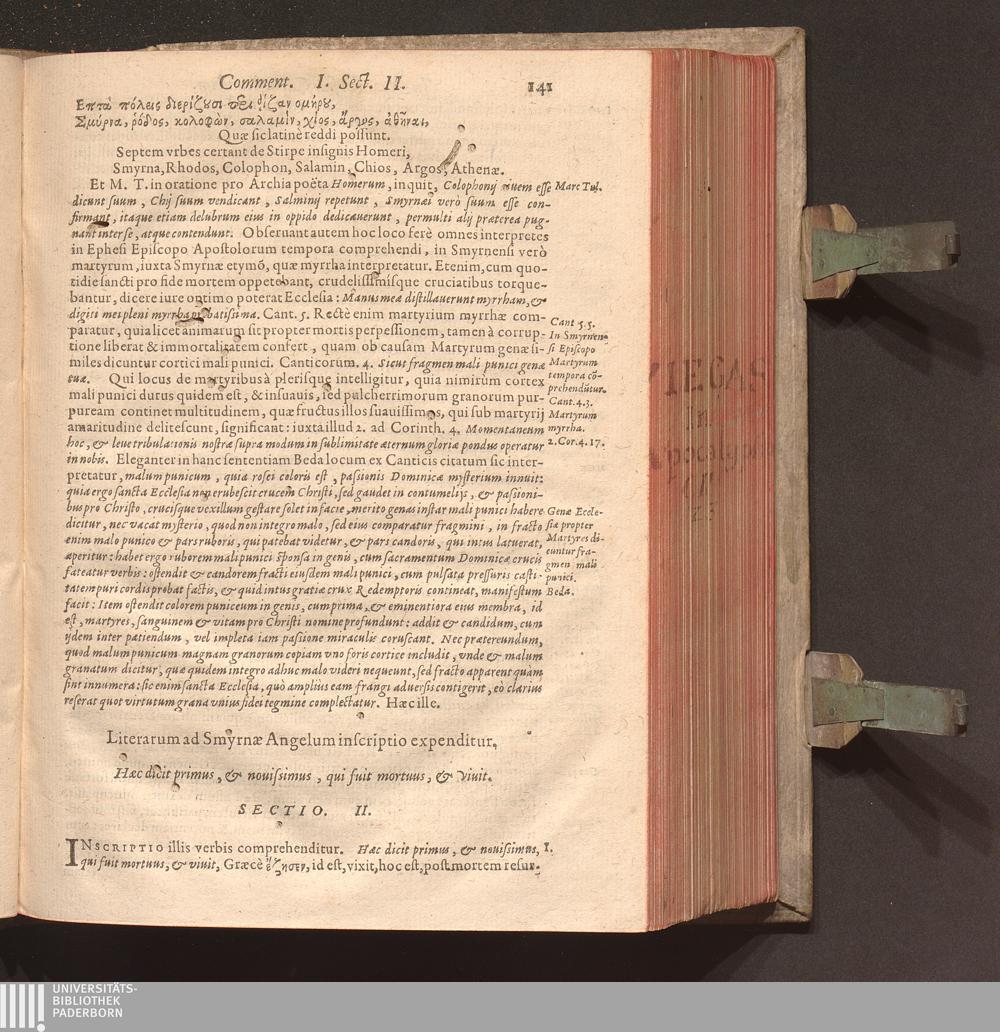 Comment. I. Sect. II. 141
Επτὰ πόλεις διερίζουσι ῥίζαν ὁμήρου,
Σμύρνα, ῥόδος, κολοφὼν, σαλαμὶν, χίος, ἄργος, ἀθῆναι,
Quæ sic latinè reddi possunt.
Septem vrbes certant de Stirpe insignis Homeri,
Smyrna, Rhodos, Colophon, Salamin, Chios, Argos, Athenæ.
Et M. T. in oratione pro Archia poëta Homerum, inquit, Colophonij ciuem esse Marc Tul.
dicunt suum, Chij suum vendicant, Salminij repetunt, Smyrnæi verò suum esse con-
firmant, itaque etiam delubrum eius in oppido dedicauerunt, permulti alij præterea pug-
nant inter se, atque contendunt. Obseruant autem hoc loco ferè omnes interpretes
in Ephesi Episcopo Apostolorum tempora comprehendi, in Smyrnensi verò
martyrum, iuxta Smyrnæ etymō, quæ myrrha interpretatur. Etenim, cum quo-
tidie sancti pro fide mortem oppetobant, crudelissimisque cruciatibus torque-
bantur, dicere iure optimo poterat Ecclesia: Manus meæ distillauerunt myrrham, &
digiti mei pleni myrrha probatissima. Cant. 5. Rectè enim martyrium myrrhæ com-
paratur, quia licet animarum sit propter mortis perpessionem, tamen à corrup-
tione liberat & immortalitatem confert, quam ob causam Martyrum genæ si-
miles dicuntur cortici mali punici. Canticorum. 4. Sicut fragmen mali punici genæ
tuæ. Qui locus de martyribus à plerisque intelligitur, quia nimirùm cortex
mali punici durus quidem est, & insuauis, sed pulcherrimorum granorum pur-
puream continet multitudinem, quæ fructus illos suauissimos, qui sub martyrij
amaritudine delitescunt, significant: iuxta illud 2. ad Corinth. 4. Momentaneum
hoc, & leue tribulationis nostræ supra modum in sublimitate æternum gloriæ pondus operatur
in nobis. Eleganter in hanc sententiam Beda locum ex Canticis citatum sic inter-
pretatur, malum punicum, quia rosei coloris est, passionis Dominicæ mysterium innuit:
quia ergo sancta Ecclesia non erubescit crucem Christi, sed gaudet in contumelijs, & passioni-
bus pro Christo, crucisque vexillum gestare solet in facie, merito genas instar mali punici habere
dicitur, nec vacat mysterio, quod non integro malo, sed eius comparatur fragmini, in fracto
enim malo punico & pars ruboris, qui patebat videtur, & pars candoris, qui intus latuerat,
aperitur: habet ergo ruborem mali punici Sponsa in genis, cum sacramentum Dominicæ crucis
fateatur verbis: ostendit & candorem fracti eiusdem mali punici, cum pulsata pressuris casti-
tatem puri cordis probat factis, & quid intus gratiæ crux Redemptoris contineat, manifestum
facit: Item ostendit colorem puniceum in genis, cum prima, & eminentiora eius membra, id
est, martyres, sanguinem & vitam pro Christi nomine profundunt: addit & candidum, cum
ijdem inter patiendum, vel impleta iam passione miraculis coruscant. Nec prætereundum,
quod malum punicum magnam granorum copiam vno foris cortice includit, vnde & malum
granatum dicitur, quæ quidem integro adhuc malo videri nequeunt, sed fracto apparent quàm
sint innumera: sic enim sancta Ecclesia, quò amplius eam frangi aduersis contigerit, eò clarius
reserat quot virtutum grana vnius fidei tegmine complectatur. Hæc ille.
Cant 5.5.
In Smyrnen-
si Episcopo
Martyrum
tempora cō-
prehendūtur.
Cant. 4.3.
Martyrum
myrrha.
2. Cor. 4. 17.
Genæ Eccle-
siæ propter
Martyres di-
cuntur fra-
gmen mali
punici.
Beda.
Literarum ad Smyrnæ Angelum inscriptio expenditur,
Hæc dicit primus, & nouissimus, qui fuit mortuus, & viuit.
SECTIO. II.
INSCRIPTIO illis verbis comprehenditur. Hæc dicit primus, & nouissimus, 1.
qui fuit mortuus, & viuit, Græcè ἔζησεν, id est, vixit, hoc est, post mortem resur-
VIEGAS
In
Apocalypsin
UNIVERSITÄTS-
BIBLIOTHEK
PADERBORN